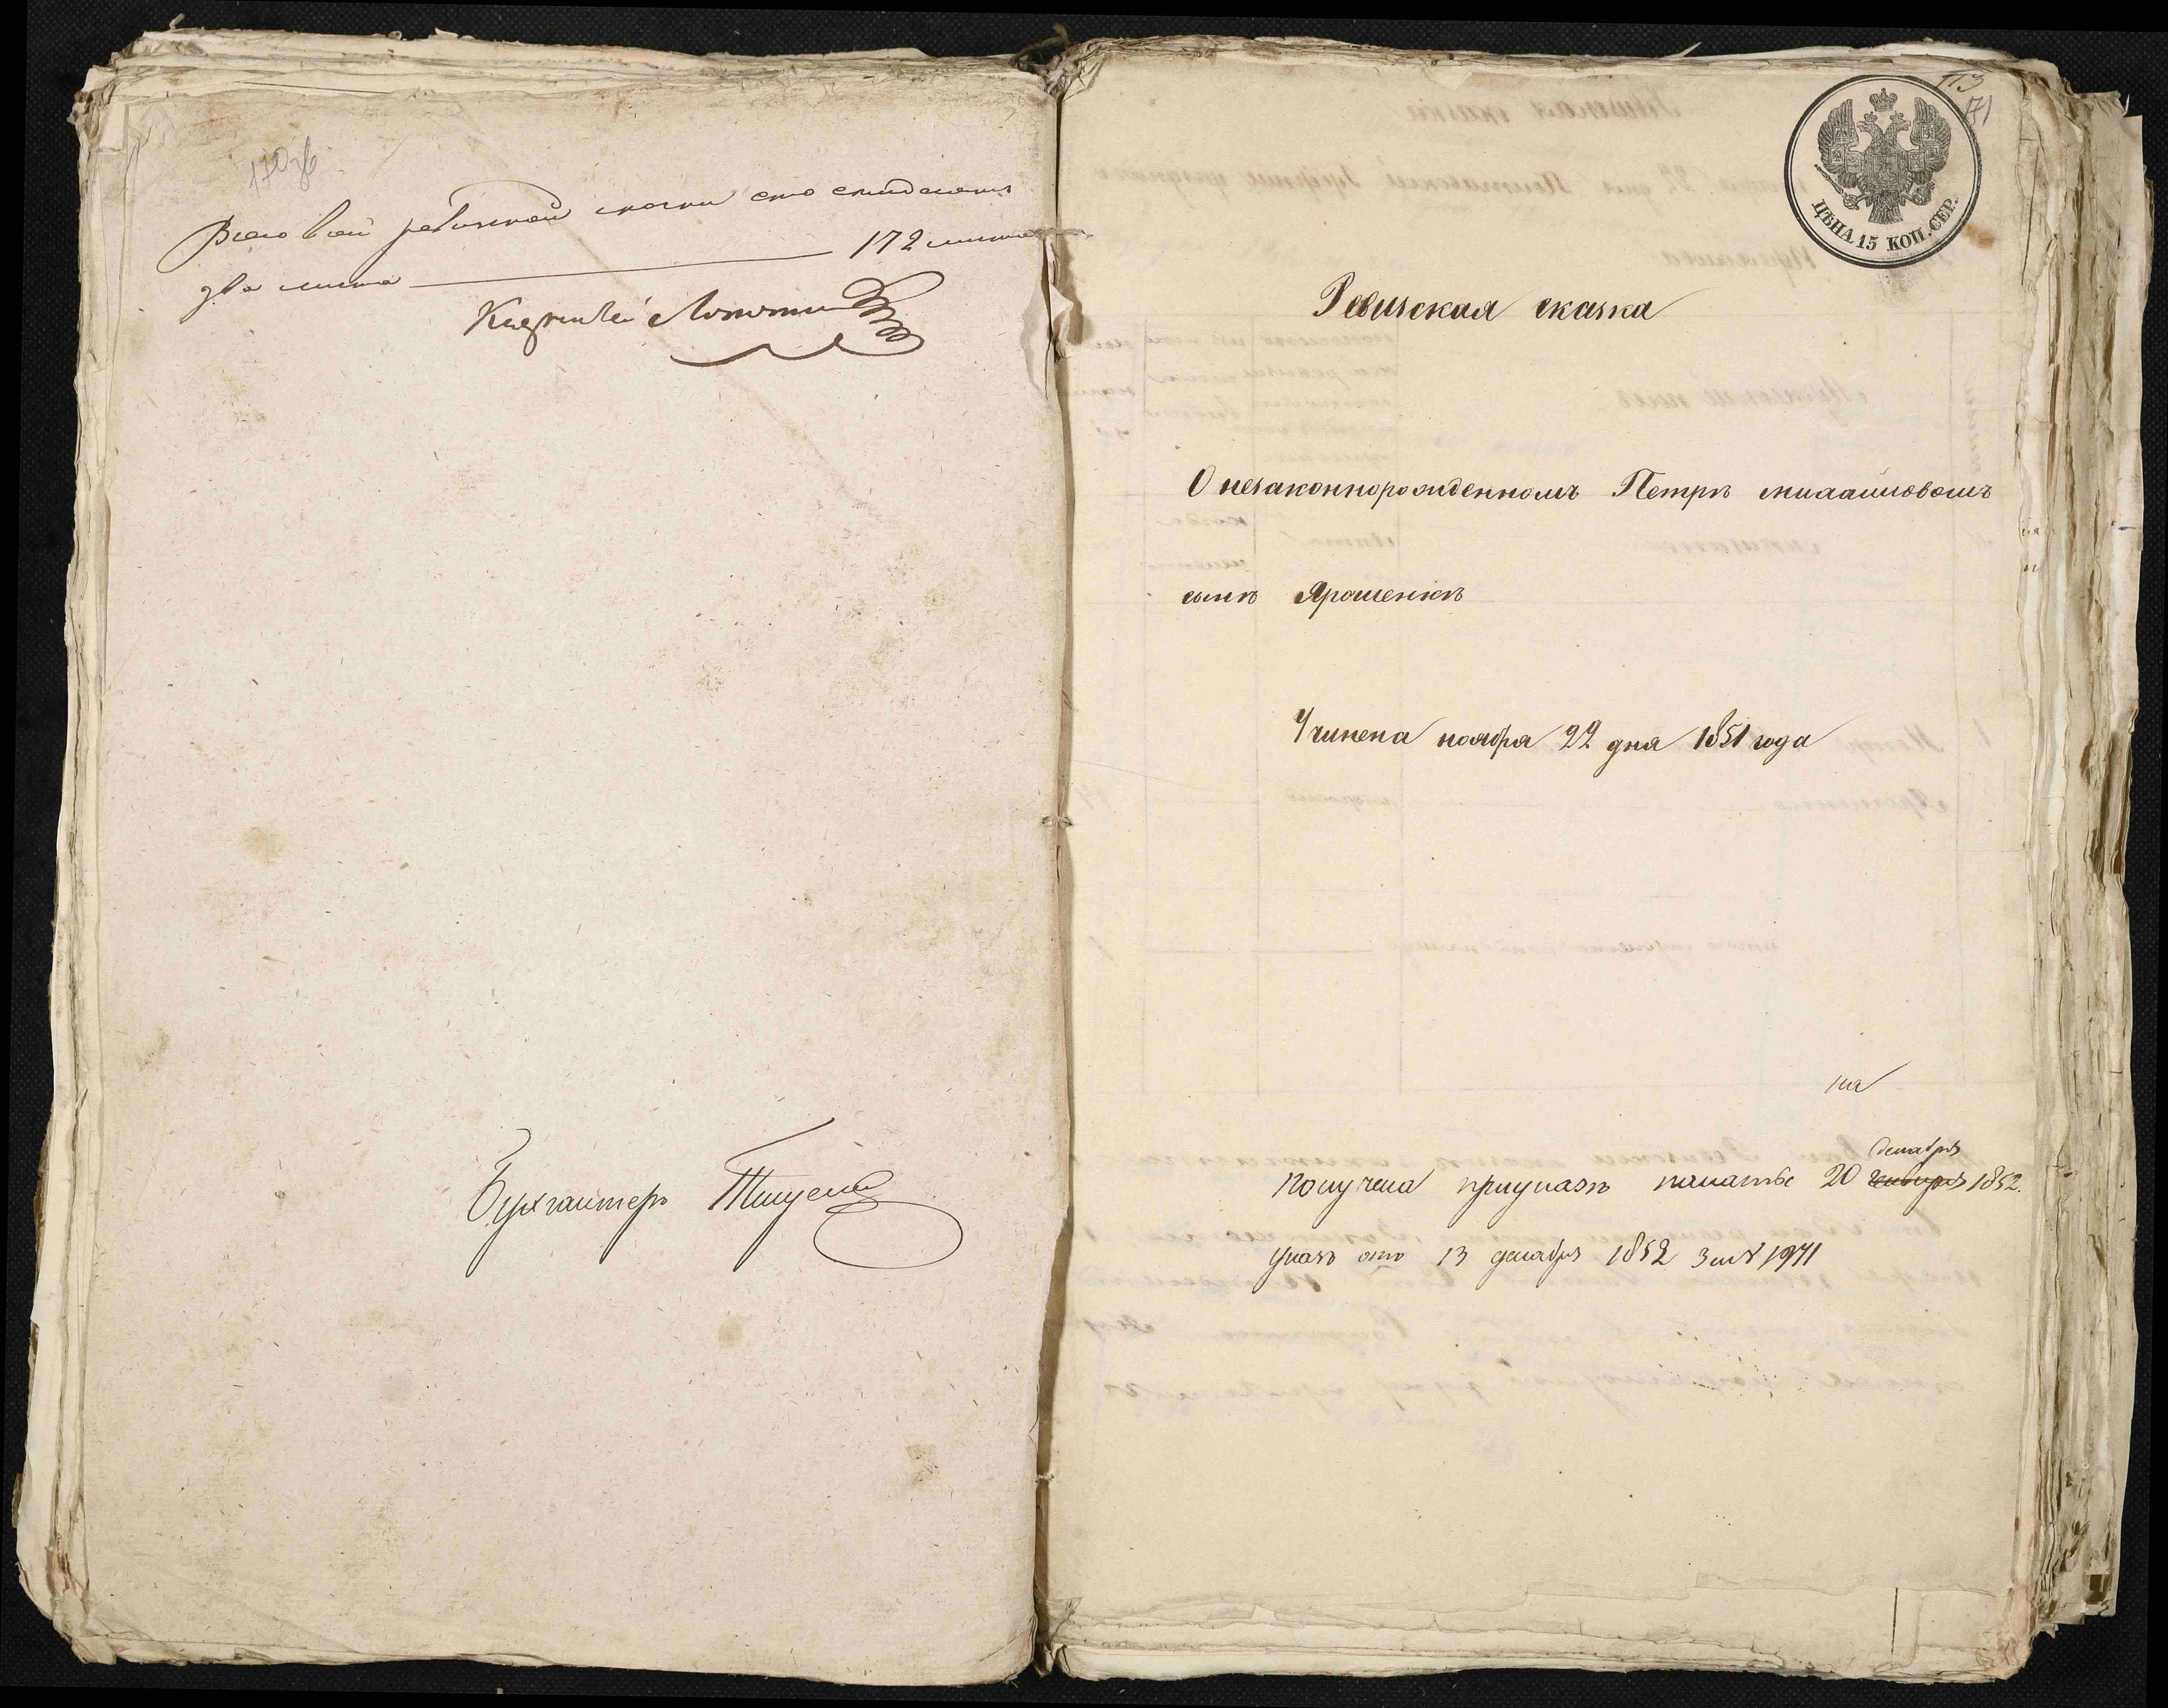 170об
Всего в сей ревизской сказки сто семдесят
два листа 172 листа
Бухгалтеръ
173
171
ЦѢНА 15 КОП. СЕР.
Ревизская сказка
О незаконнорожденномъ Петрѣ Михайловомъ
сынѣ Ярошенкѣ
Учинена ноября 22 дня 1851 года
на
Получена приуказѣ палаты 20 декабря генваря 1852.
указъ отъ 13 декабря 1852 за № 1971